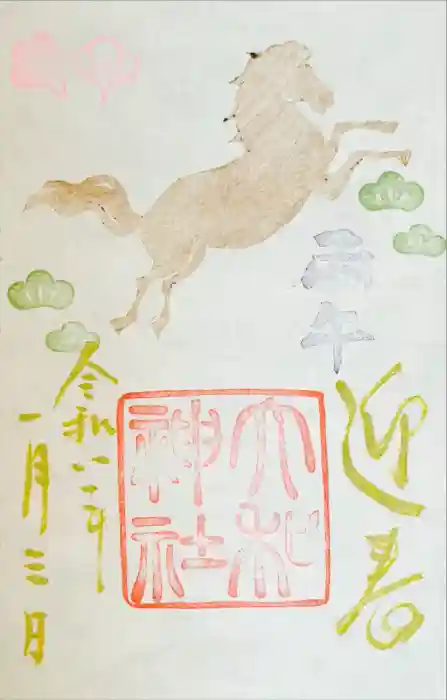 丙午
迎春
大和
神社
令和八年
一月三日